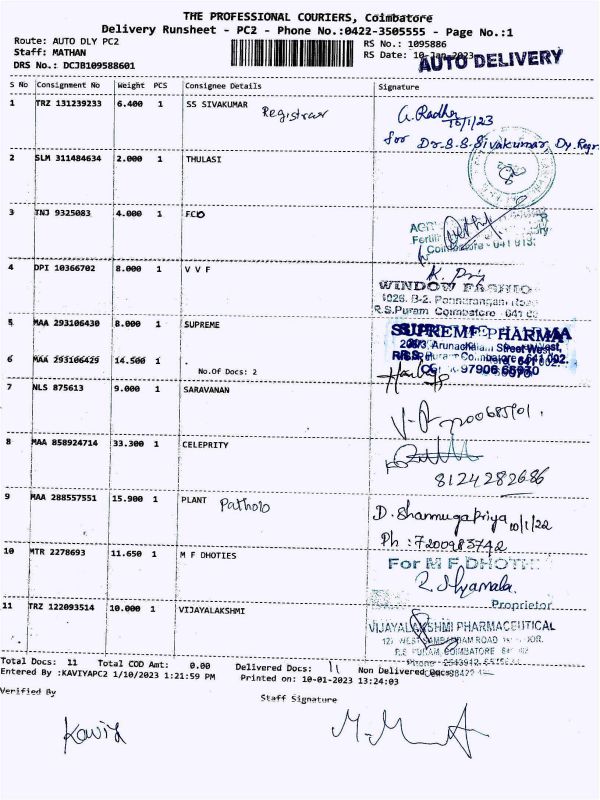 THE PROFESSIONAL COURIERS, Coimbatore
Delivery Runsheet - PC2 - Phone No.:0422-3505555 - Page No.:1
Route: AUTO DLY PC2
RS No.: 1095886
Staff: MATHAN
RS Date: 10-Jan-2023
AUTO DELIVERY
DRS No.: DCJB109588601
S No Consignment No Weight PCS Consignee Details Signature
1 TRZ 131239233 6.400 1 SS SIVAKUMAR Registrar
G. Radha 10/1/23
for Dr.S.S.Sivakumar, Dy.Regr.
2 SLM 311484634 2.000 1 THULASI
3 TNJ 9325083 4.000 1 FCO
Coimbatore - 641 013.
4 DPI 10366702 8.000 1 V V F
WINDOW FASHIO
R.S.Puram Coimbatore 641 02
5 MAA 293106430 8.000 1 SUPREME
SUPREME PHARMA
Arunachalam Street West,
R.S. Puram Coimbatore - 641 002.
97906 65070
6 MAA 293106429 14.500 1
No.Of Docs: 2
7 NLS 875613 9.000 1 SARAVANAN
8 MAA 858924714 33.300 1 CELEPRITY
8124282686
9 MAA 288557551 15.900 1 PLANT Patholo
D. Shanmugapriya 10/1/22
Ph : 7200983742
10 MTR 2278693 11.650 1 M F DHOTIES
For M F DHOTI
Proprietor
11 TRZ 122093514 10.000 1 VIJAYALAKSHMI
VIJAYALAKSHMI PHARMACEUTICAL
R.S PURAM, COIMBATORE
Total Docs: 11 Total COD Amt: 0.00 Delivered Docs: 11 Non Delivered Docs:
Entered By :KAVIYAPC2 1/10/2023 1:21:59 PM Printed on: 10-01-2023 13:24:03
Verified By
Staff Signature
Kaviya